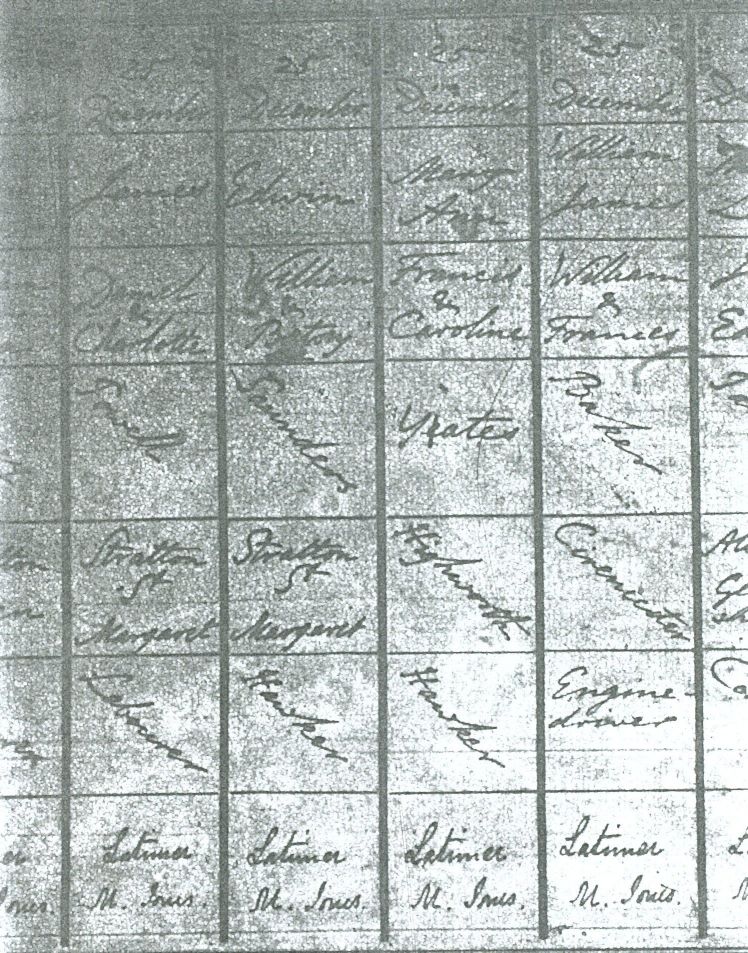 25
December
James
Daniel
&
Charlotte
Stratton
St
Margaret
Labourer
Latimer
M. Jones.
25
December
Edwin
William
&
Betsy
Saunders
Stratton
St
Margaret
Hawker
Latimer
M. Jones.
25
December
Mary
Ann
Francis
&
Caroline
Yeates
Highworth
Hawker
Latimer
M. Jones.
25
December
William
James
William
&
Frances
Baker
Cirencester
Engine-
driver
Latimer
M. Jones.